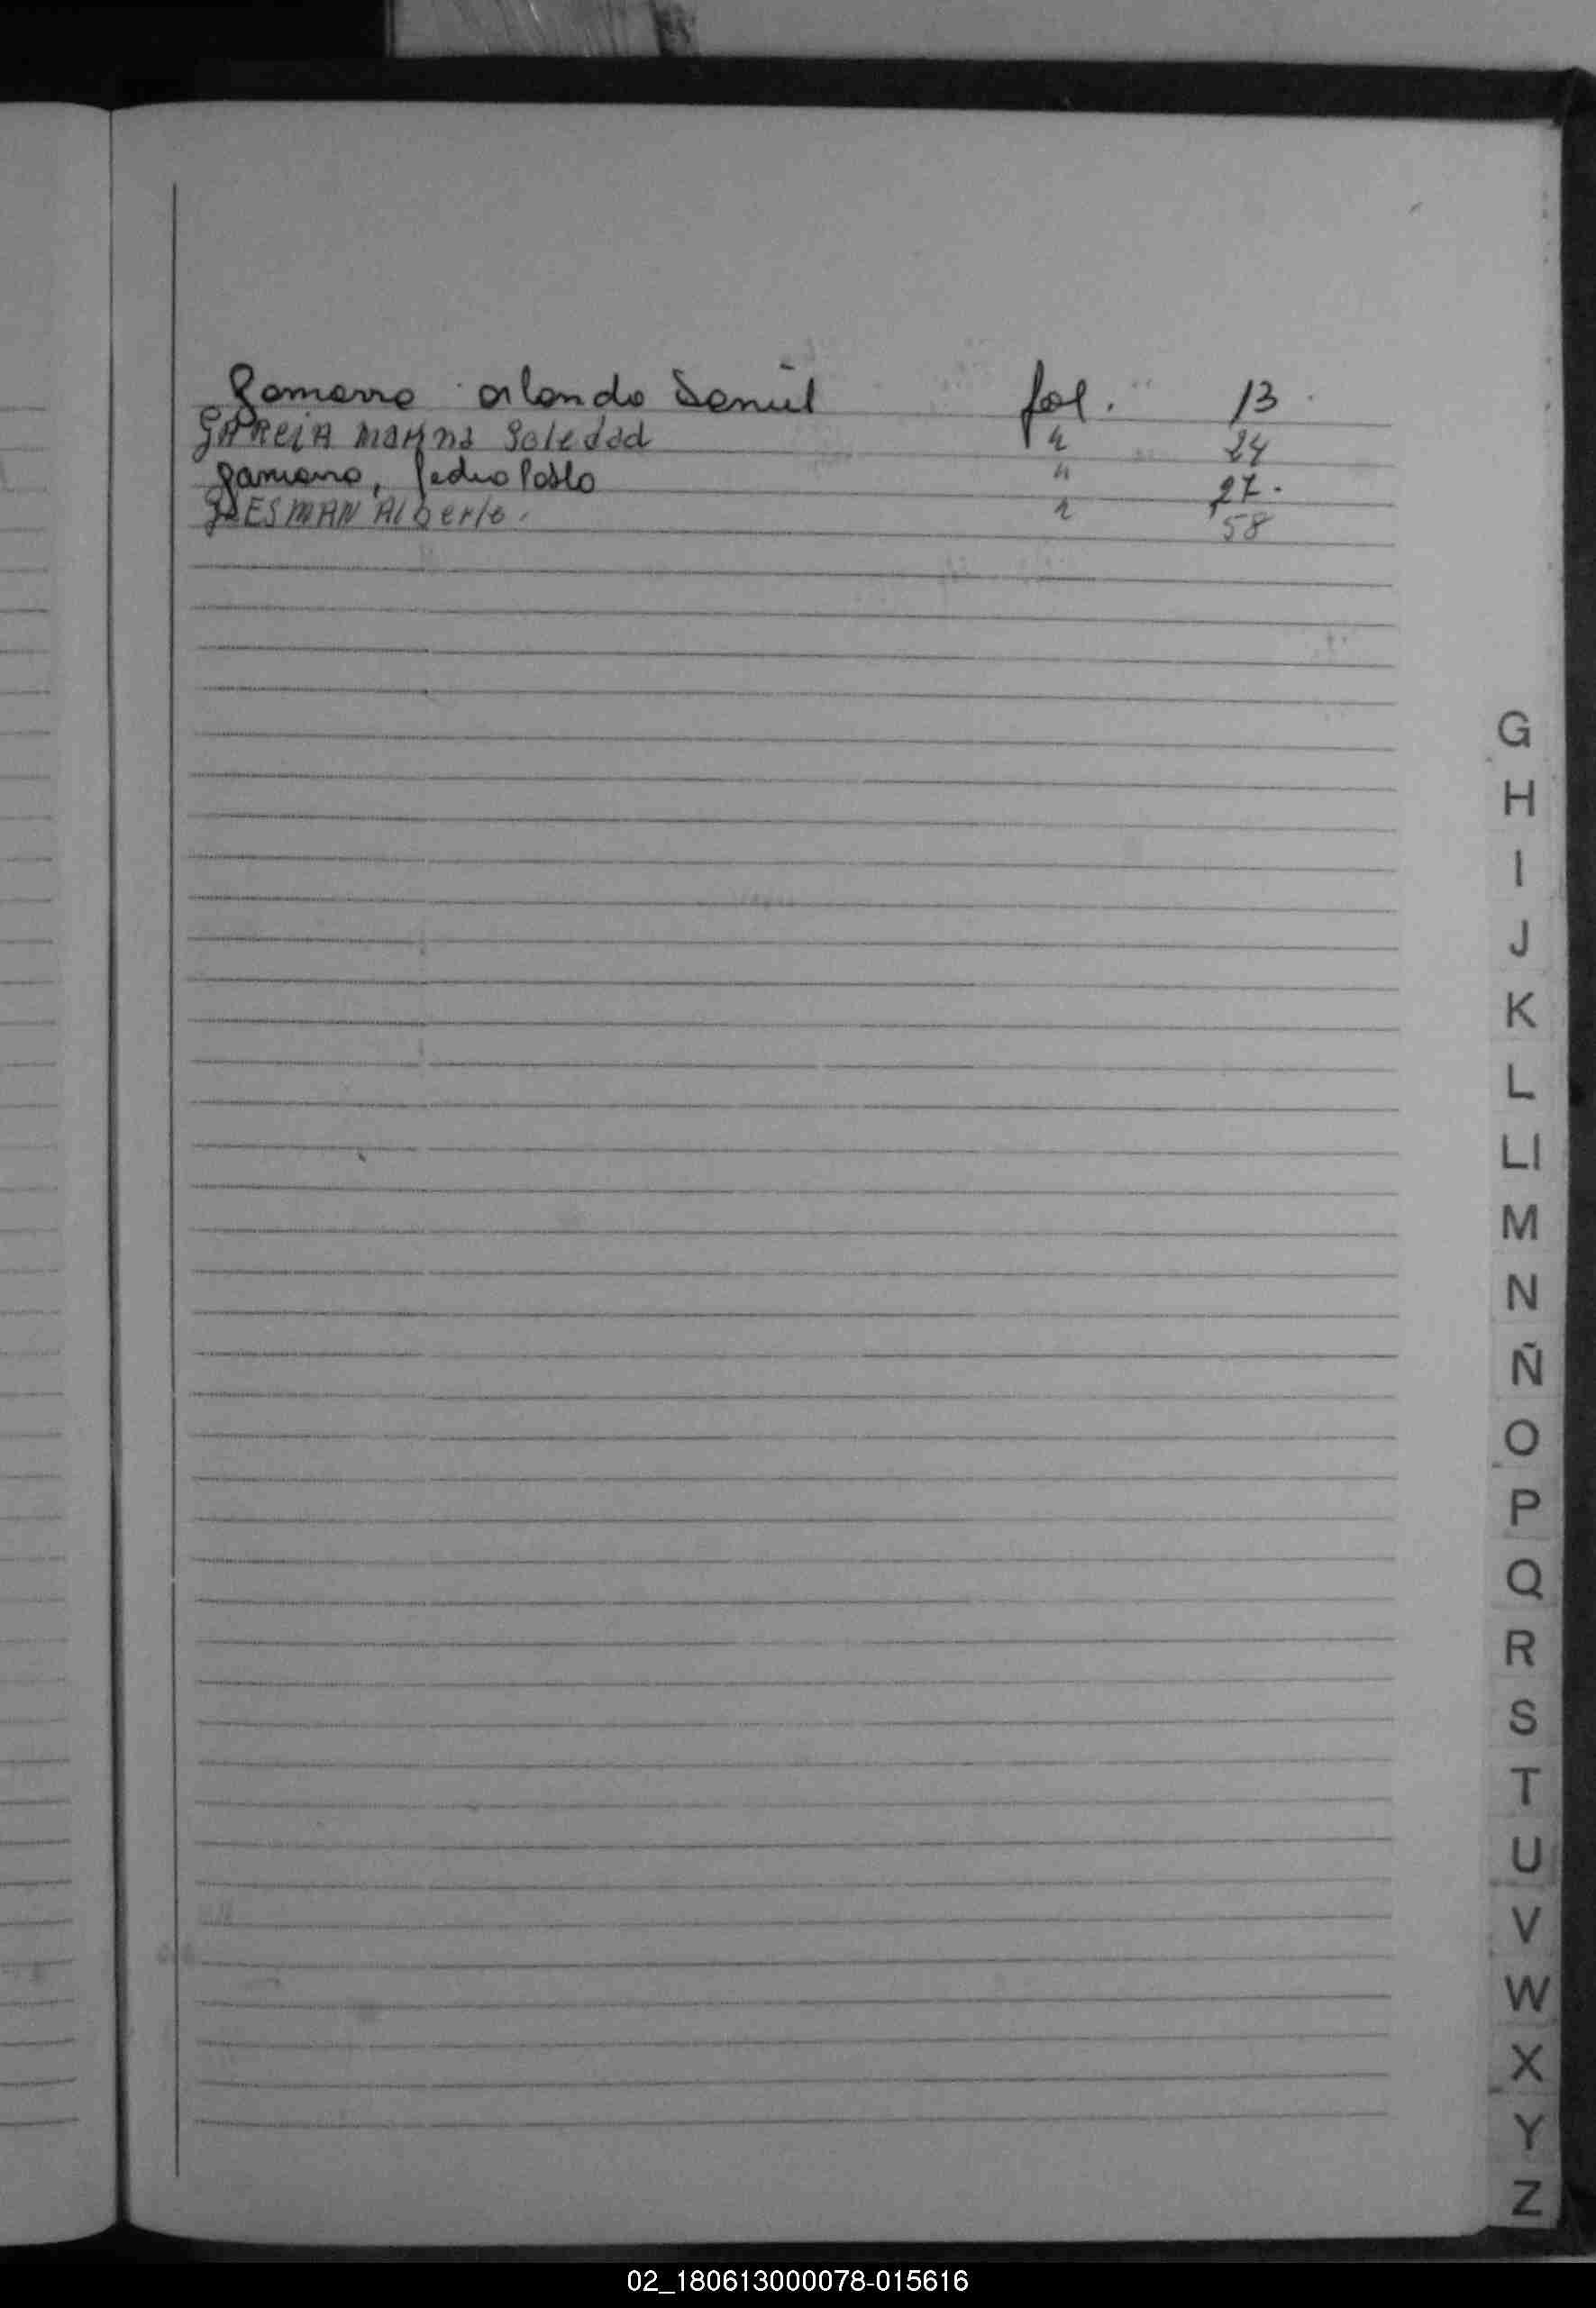 Gamarra Orlando Daniel fol. 13
GARCIA Marina Soledad " 24
Gamarra, Pedro Pablo " 27.
ESMAN Alberto. " 58
G
H
I
J
K
L
Ll
M
N
Ñ
O
P
Q
R
S
T
U
V
W
X
Y
Z
02_180613000078-015616